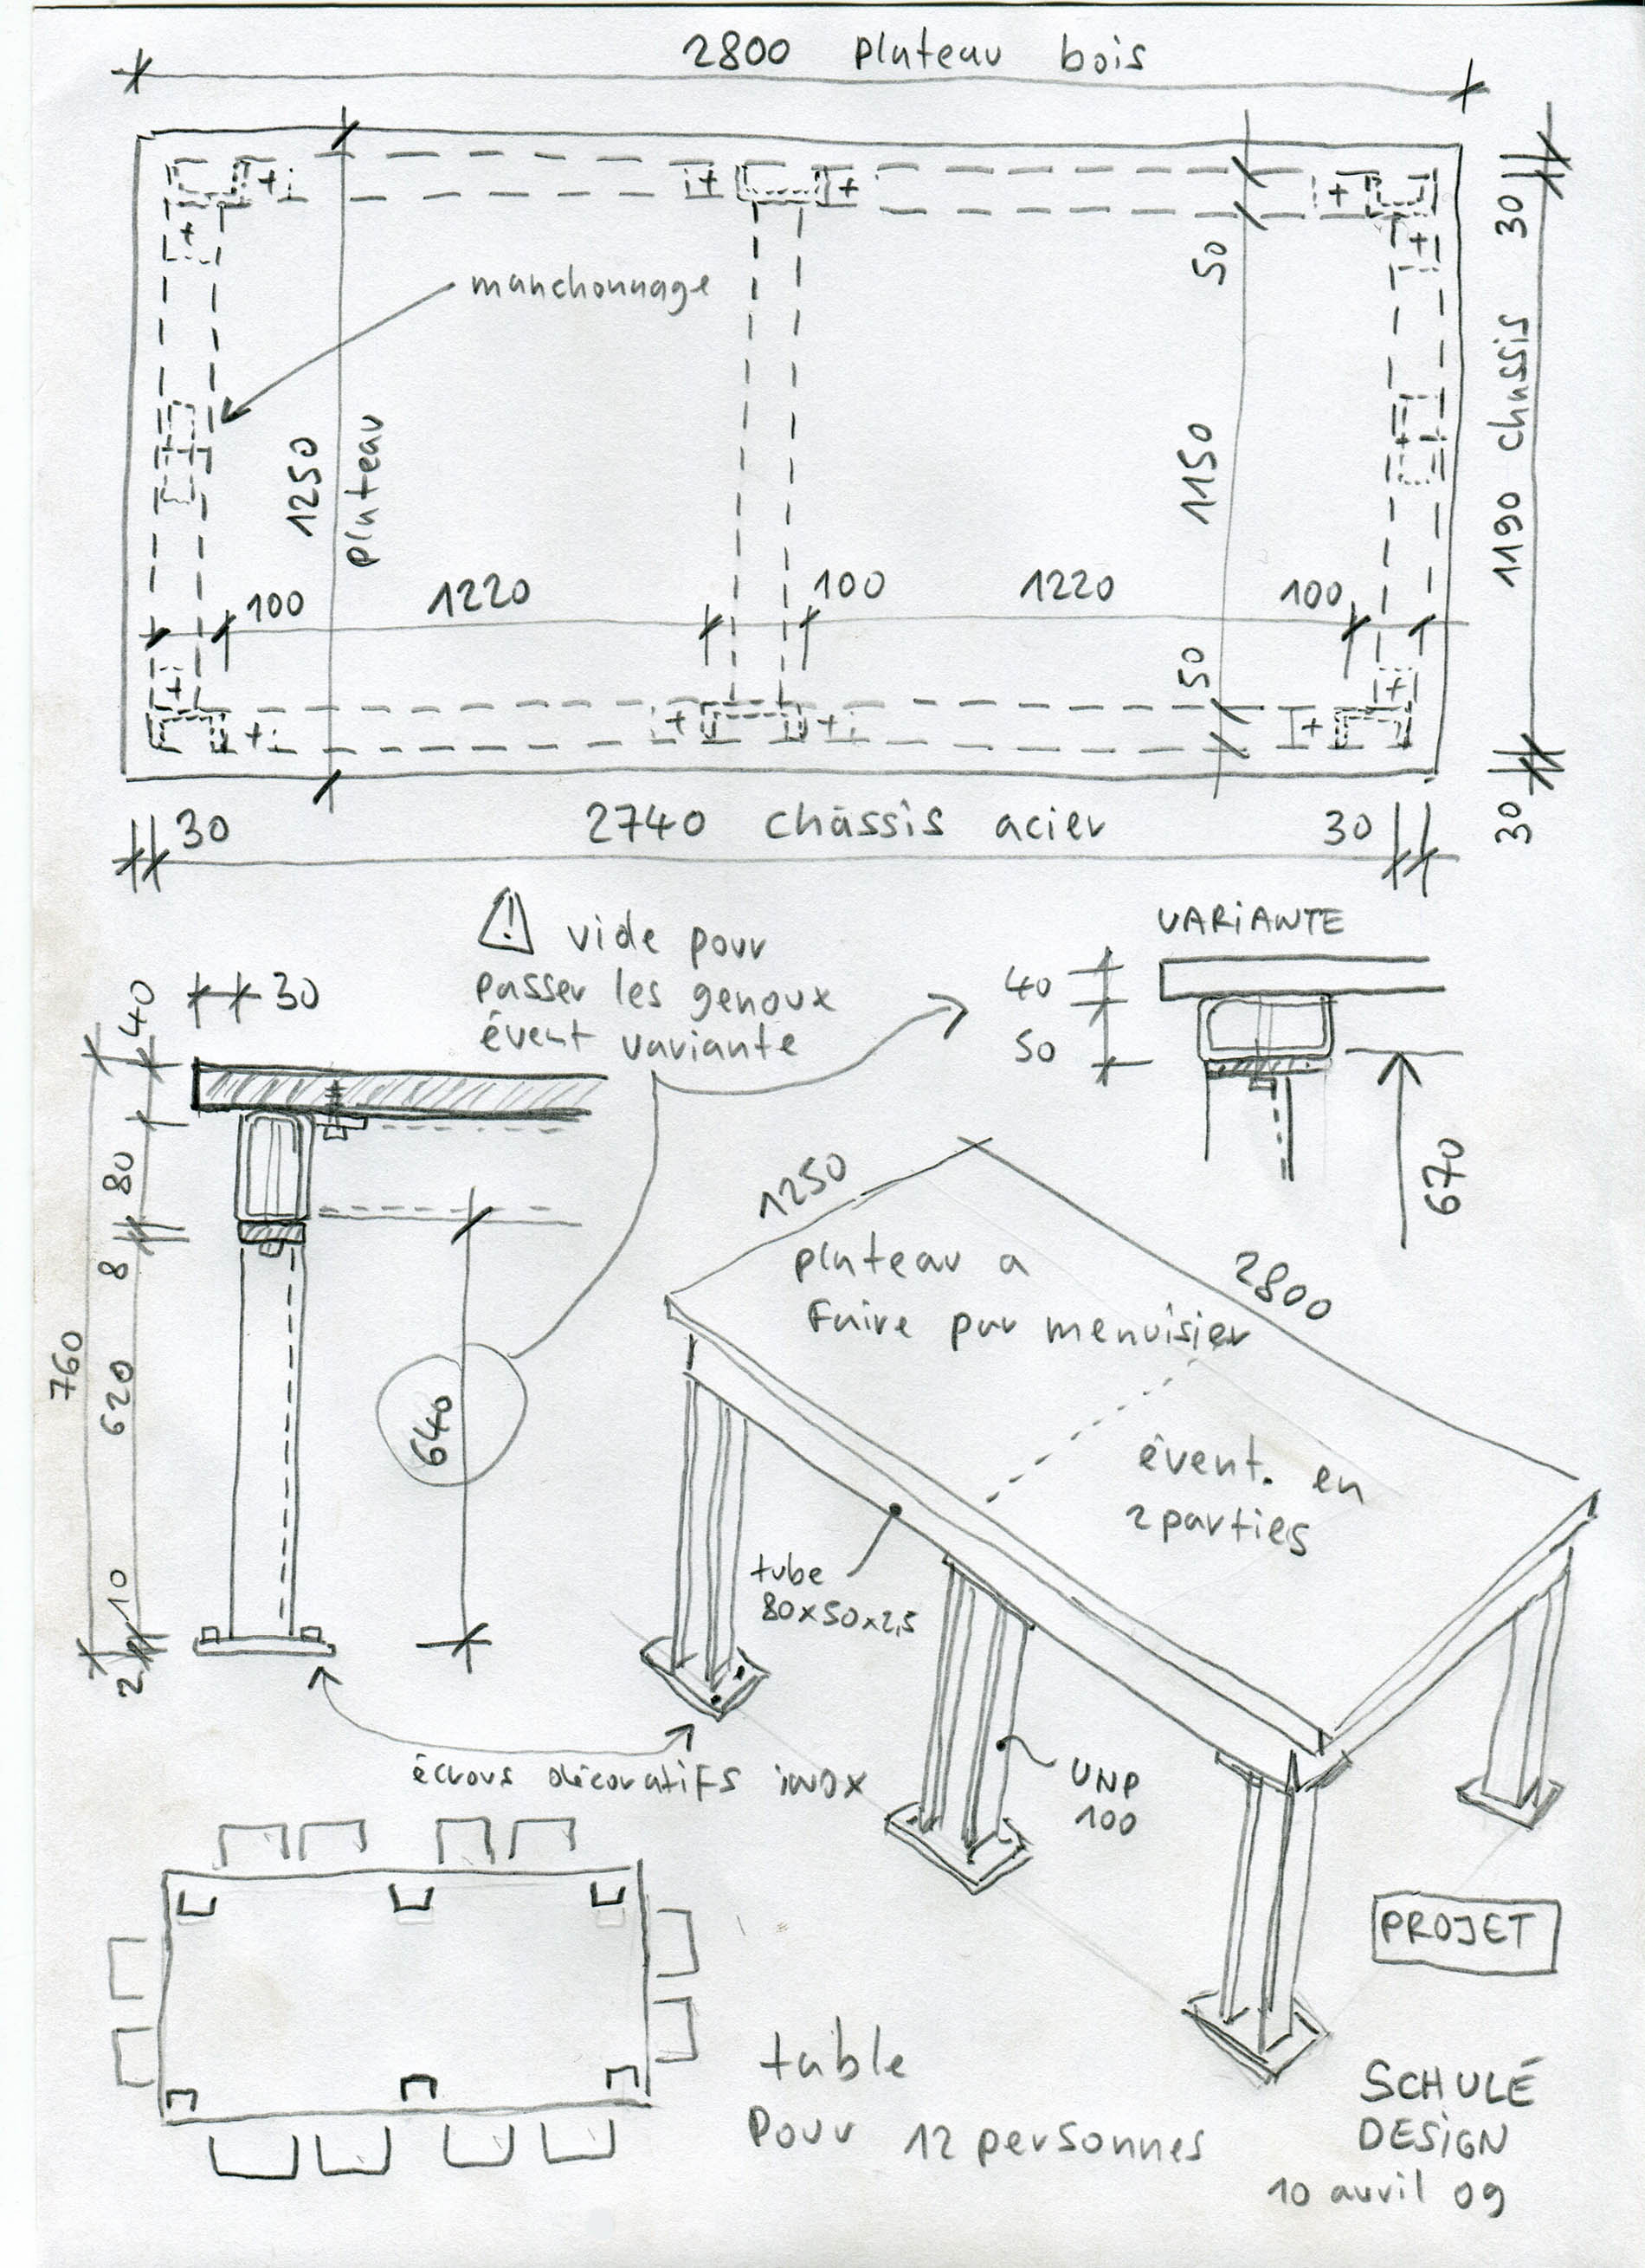 2800 plateau bois
30
50
manchonnage
1250
plateau
1150
1190 chassis
100
1220
100
1220
100
50
30
2740 châssis acier
30
30
⚠ vide pour
passer les genoux
évent variante
VARIANTE
40
50
670
30
40
80
8
760
620
640
10
2
1250
2800
plateau a
faire par menuisier
évent. en
2 parties
tube
80x50x2,5
UNP
100
écrous décoratifs inox
PROJET
table
pour 12 personnes
SCHULÉ
DESIGN
10 avril 09